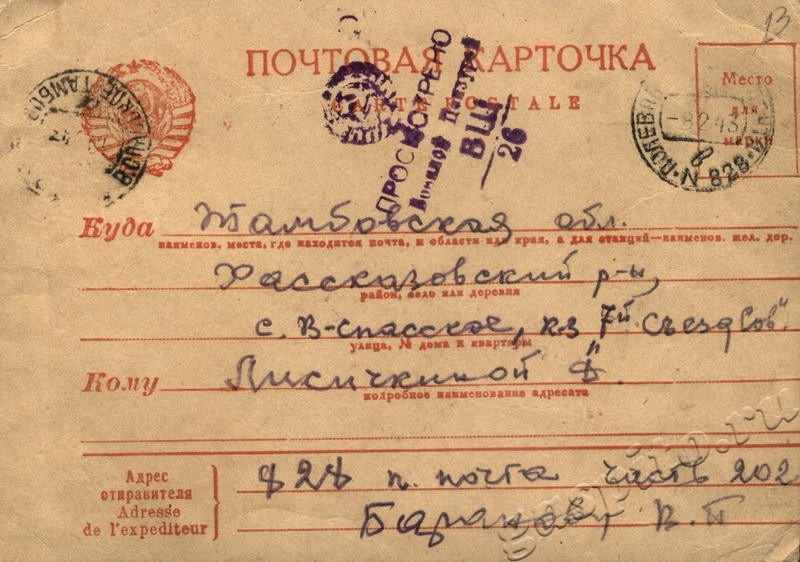 13
ПОЧТОВАЯ КАРТОЧКА
CARTE POSTALE
Место
для
марки
ПРОСМОТРЕНО
Военной Цензурой
ВШ
26
-8 2 43
N 828
Куда Тамбовская обл.
наименов. места, где находится почта, и области или края, а для станций—наименов. жел. дор.
Рассказовский р-н,
район, село или деревня
с. В-Спасское, к-з 7й Съезд Сов"
улица, № дома и квартиры
Кому Лисичкиной Ф.
подробное наименование адресата
Адрес
отправителя
Adresse
de l'expediteur
828 п. почта часть 202
Баранову В.П